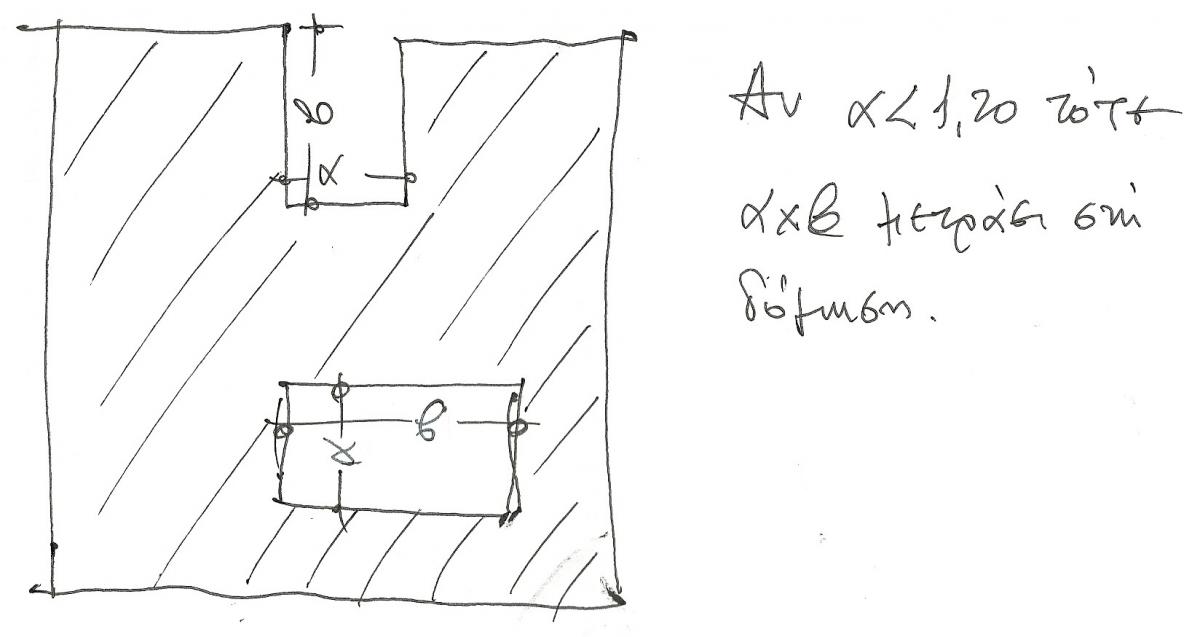 β
α
β
α
Αν α<1,20 τότε
αxβ μετράει στη
δόμηση.